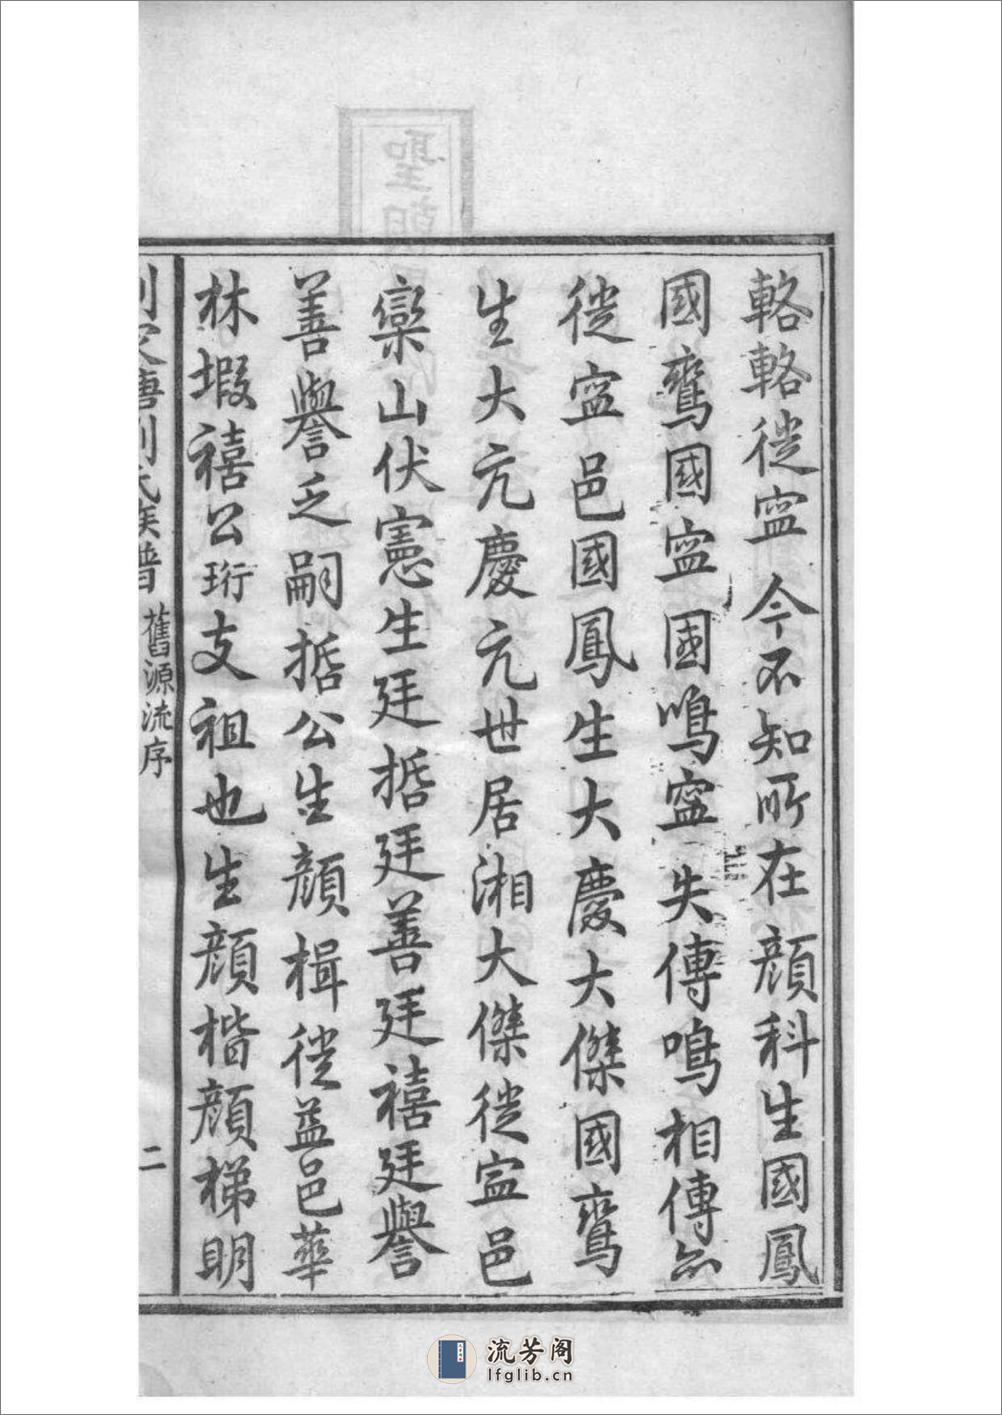 輅輅徙寧今不知所在顔科生國鳳
國鸞國寧國鳴寧失傳鳴相傳亦
徙寧邑國鳳生大慶大傑國鸞
生大亢慶亢世居湘大傑徙寧邑
欒山伏憲生廷㧞廷善廷禧廷譽
善譽乏嗣㧞公生顔楫徙益邑華
林塅禧公珩支祖也生顔楷顔梯明
唐劉氏族譜
舊源流序
二
聖朝
流芳阁
lfglib.cn